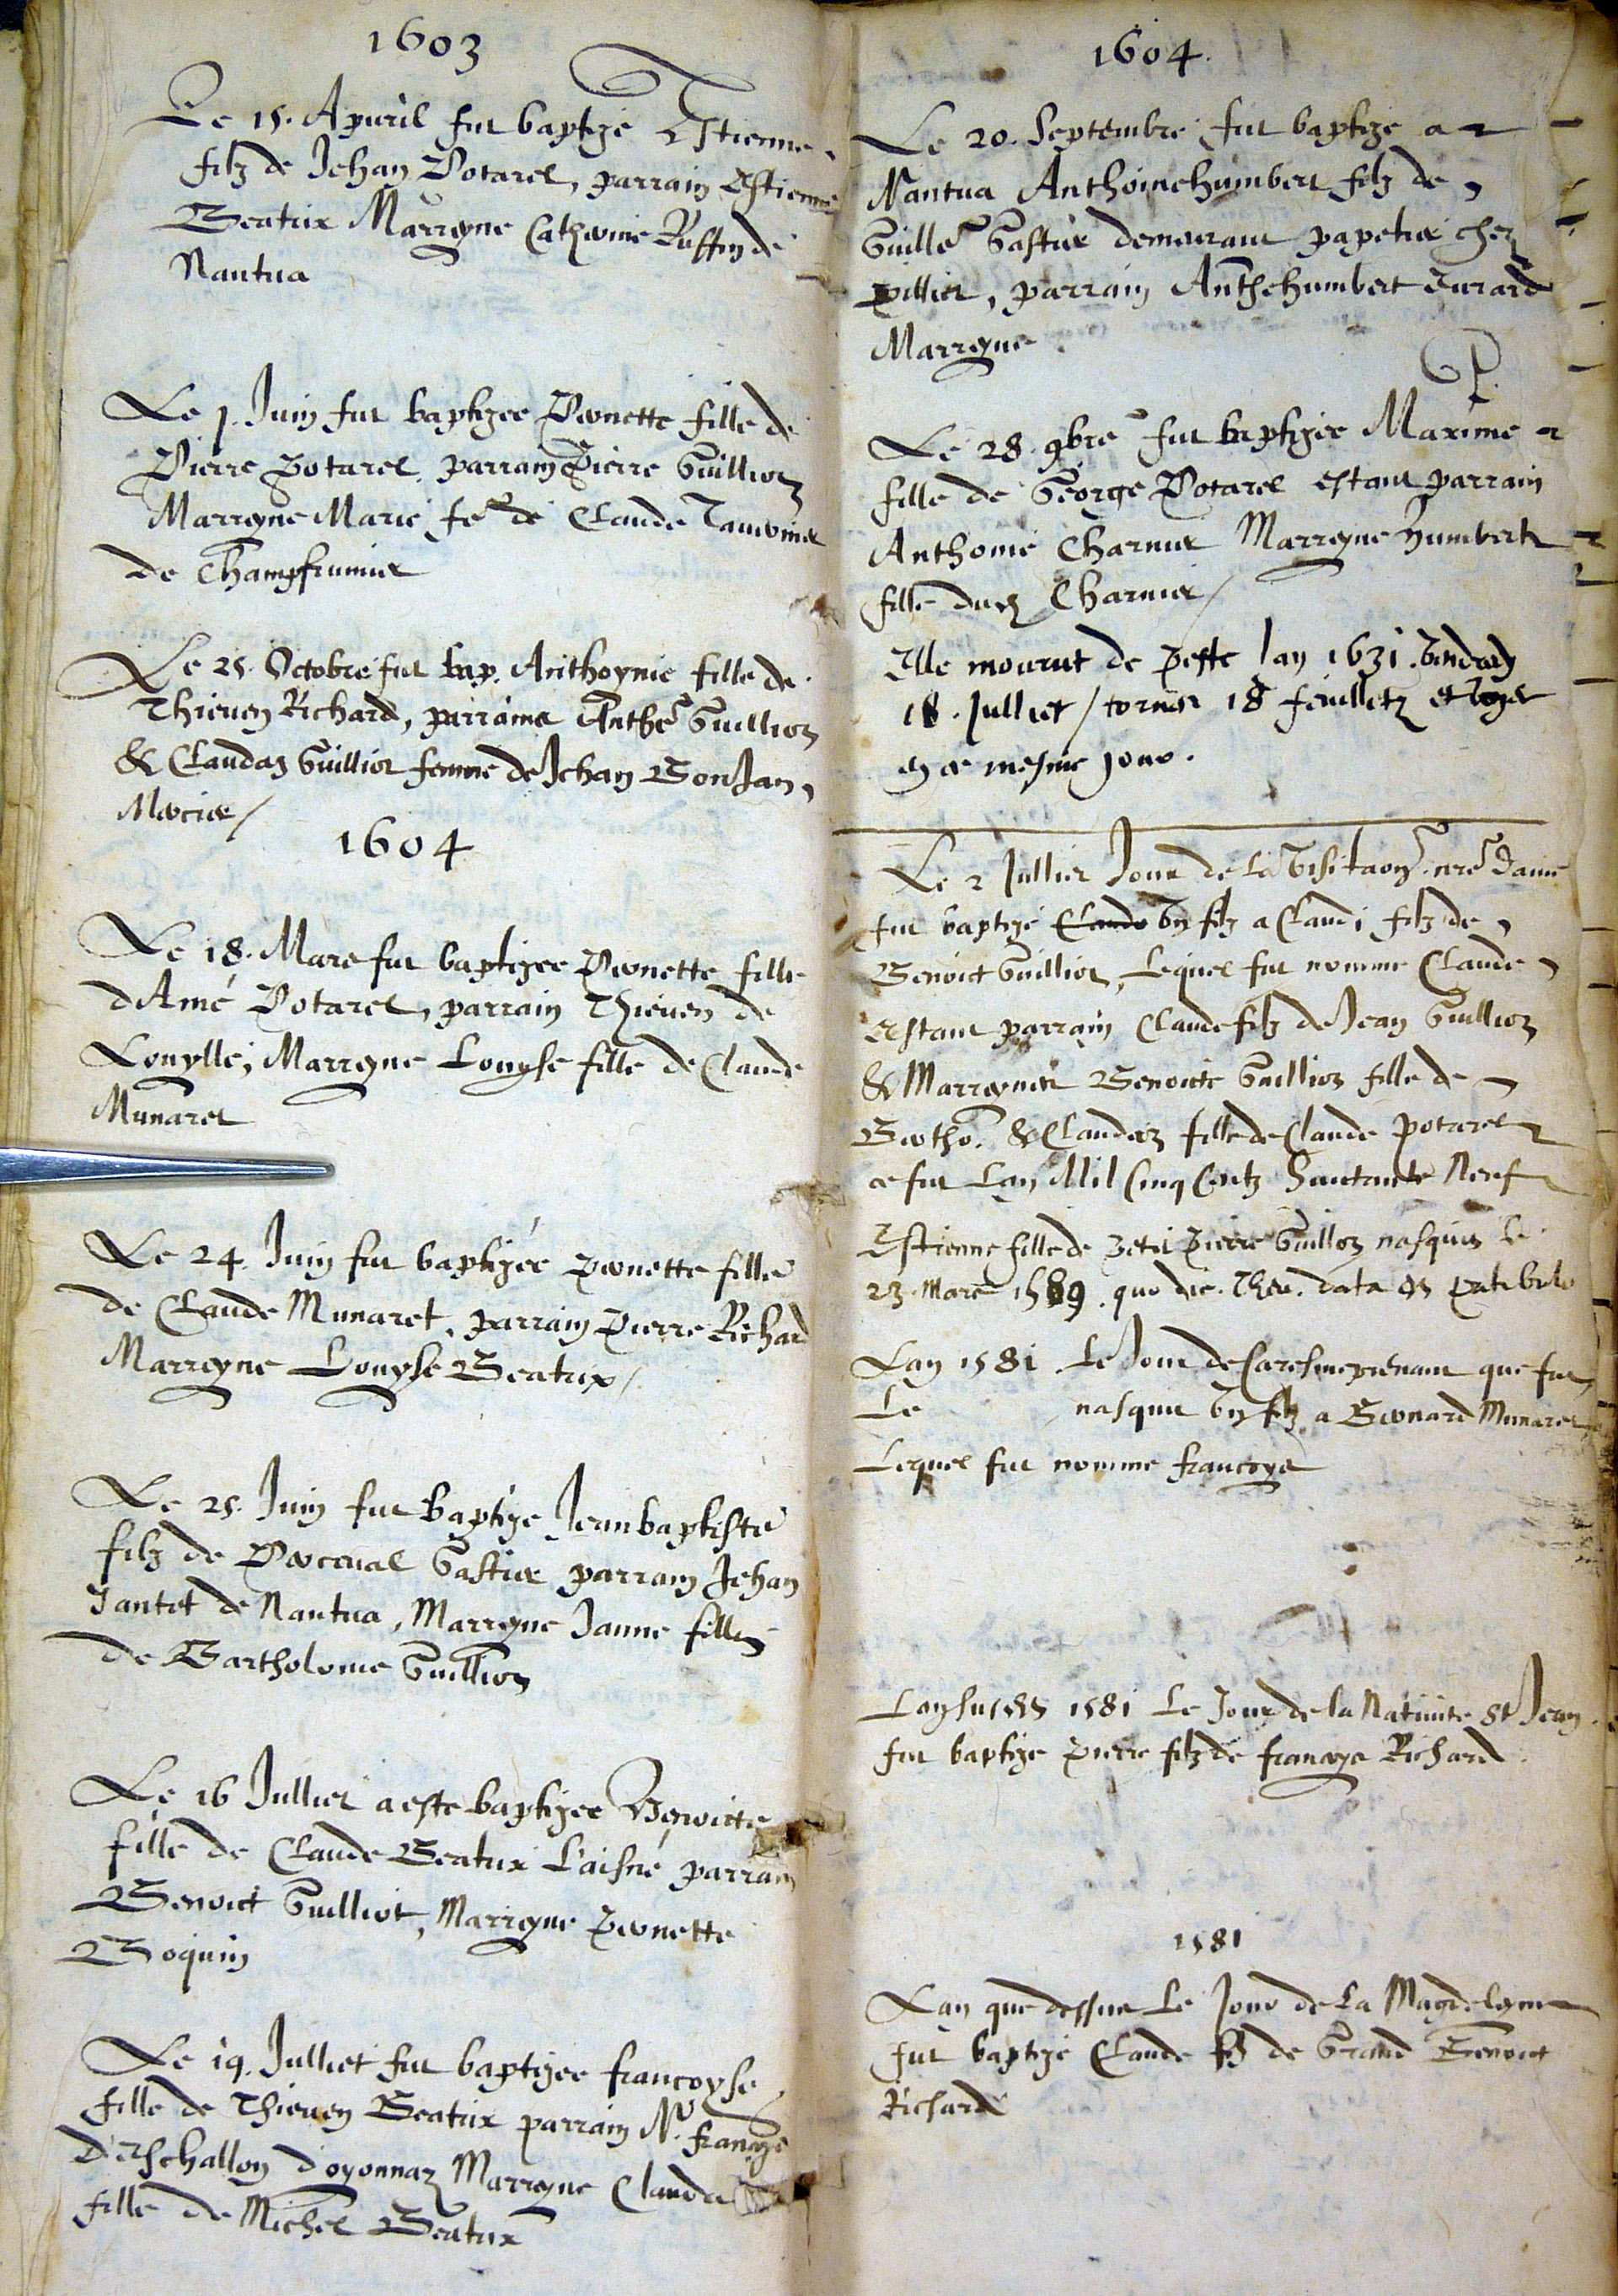 1603
Le 15. Apuril fut baptizé Estienne
filz de Jehan Potarel, parrain Estienne
Beatrix Marreyne Catherine Ruffin de
Nantua
Le 1. Juin fut baptizee Pernette fille de
Pierre Potarel. parrain Pierre Guilliot
Marreyne Marie fe de Claude
de Champfrumier
Le 25. Octobre fut bap. Anthoynie fille de
Thieuen Richard, parrains Anthe Guilliot
& Claudaz Guilliot femme de Jehan BonJan
Mercier /
1604
Le 18. Mars fut baptizee Pernette fille
d'Amé Potarel, parrain Thieuen de
Louylle, Marreyne Louyse fille de Claude
Munaret
Le 24. Juin fut baptizée pernette fille
de Claude Munaret, parrain Pierre Richard
Marreyne Louyse Beatrix /
Le 25. Juin fut Baptize Jeanbaptiste
filz de Perceual Gastier parrain Jehan
Jantet de Nantua, Marreyne Janne fille
de Bartholome Guillion
Le 16 Jullier a este baptizee Benoicte
fille de Claude Beatrix L'aisné parrain
Benoict Guilliot, Marreyne pernette
Boquin
Le 19. Julliet fut baptizee francoyse
fille de Thieuen Beatrix parrain Mr. francoys
D'Eschallon d'oyonnaz Marreyne Clauda
fille de Michel Beatrix
1604.
Le 20. Septembre fut baptize a
Nantua Anthoinehumbert filz de
Guille Gastier demeurant papetier chez
pillier, parrain Anthehumbert Eurard
Marreyne
P.
Le 28. 9bre fut baptizée Maxime
fille de George Potarel estant parrain
Anthoine Charnier Marreyne Humberte
fille dud Charnier /
Elle mourut de peste lan 1631. Vendredy
18. Julliet / tornes 18 feuilletz et
en ce mesme jour.
Le 2 Jullier Jour de la Visitaon nre Dame
fut baptizé Claude Vn filz a Claudi filz de
Benoict Guilliot, Lequel fut nomme Claude
Estant parrain Claude filz de Jean Guilliot
& Marreynes Benoicte Guilliot fille de
Bertho. & Claudaz fille de Claude potarel
ce fut Lan Mil Cinq Centz Huictante Neuf
Estienne fille de petit Pierre Guilliot nasquit Le
23. Mars 1589. quo die. data est patibulo
Lan 1581. Le Jour de Caresmeprenant que fut
Le nasquit Vn filz a Bernard Munaret
Lequel fut nomme francoys
Lan susdit 1581 Le Jour de la Natiuite St Jean
fut baptize pierre filz de francoys Richard.
1581
Lan que dessus Le Jour de La Magdeleyne
fut baptizé Claude filz de Grand Benoict
Richard